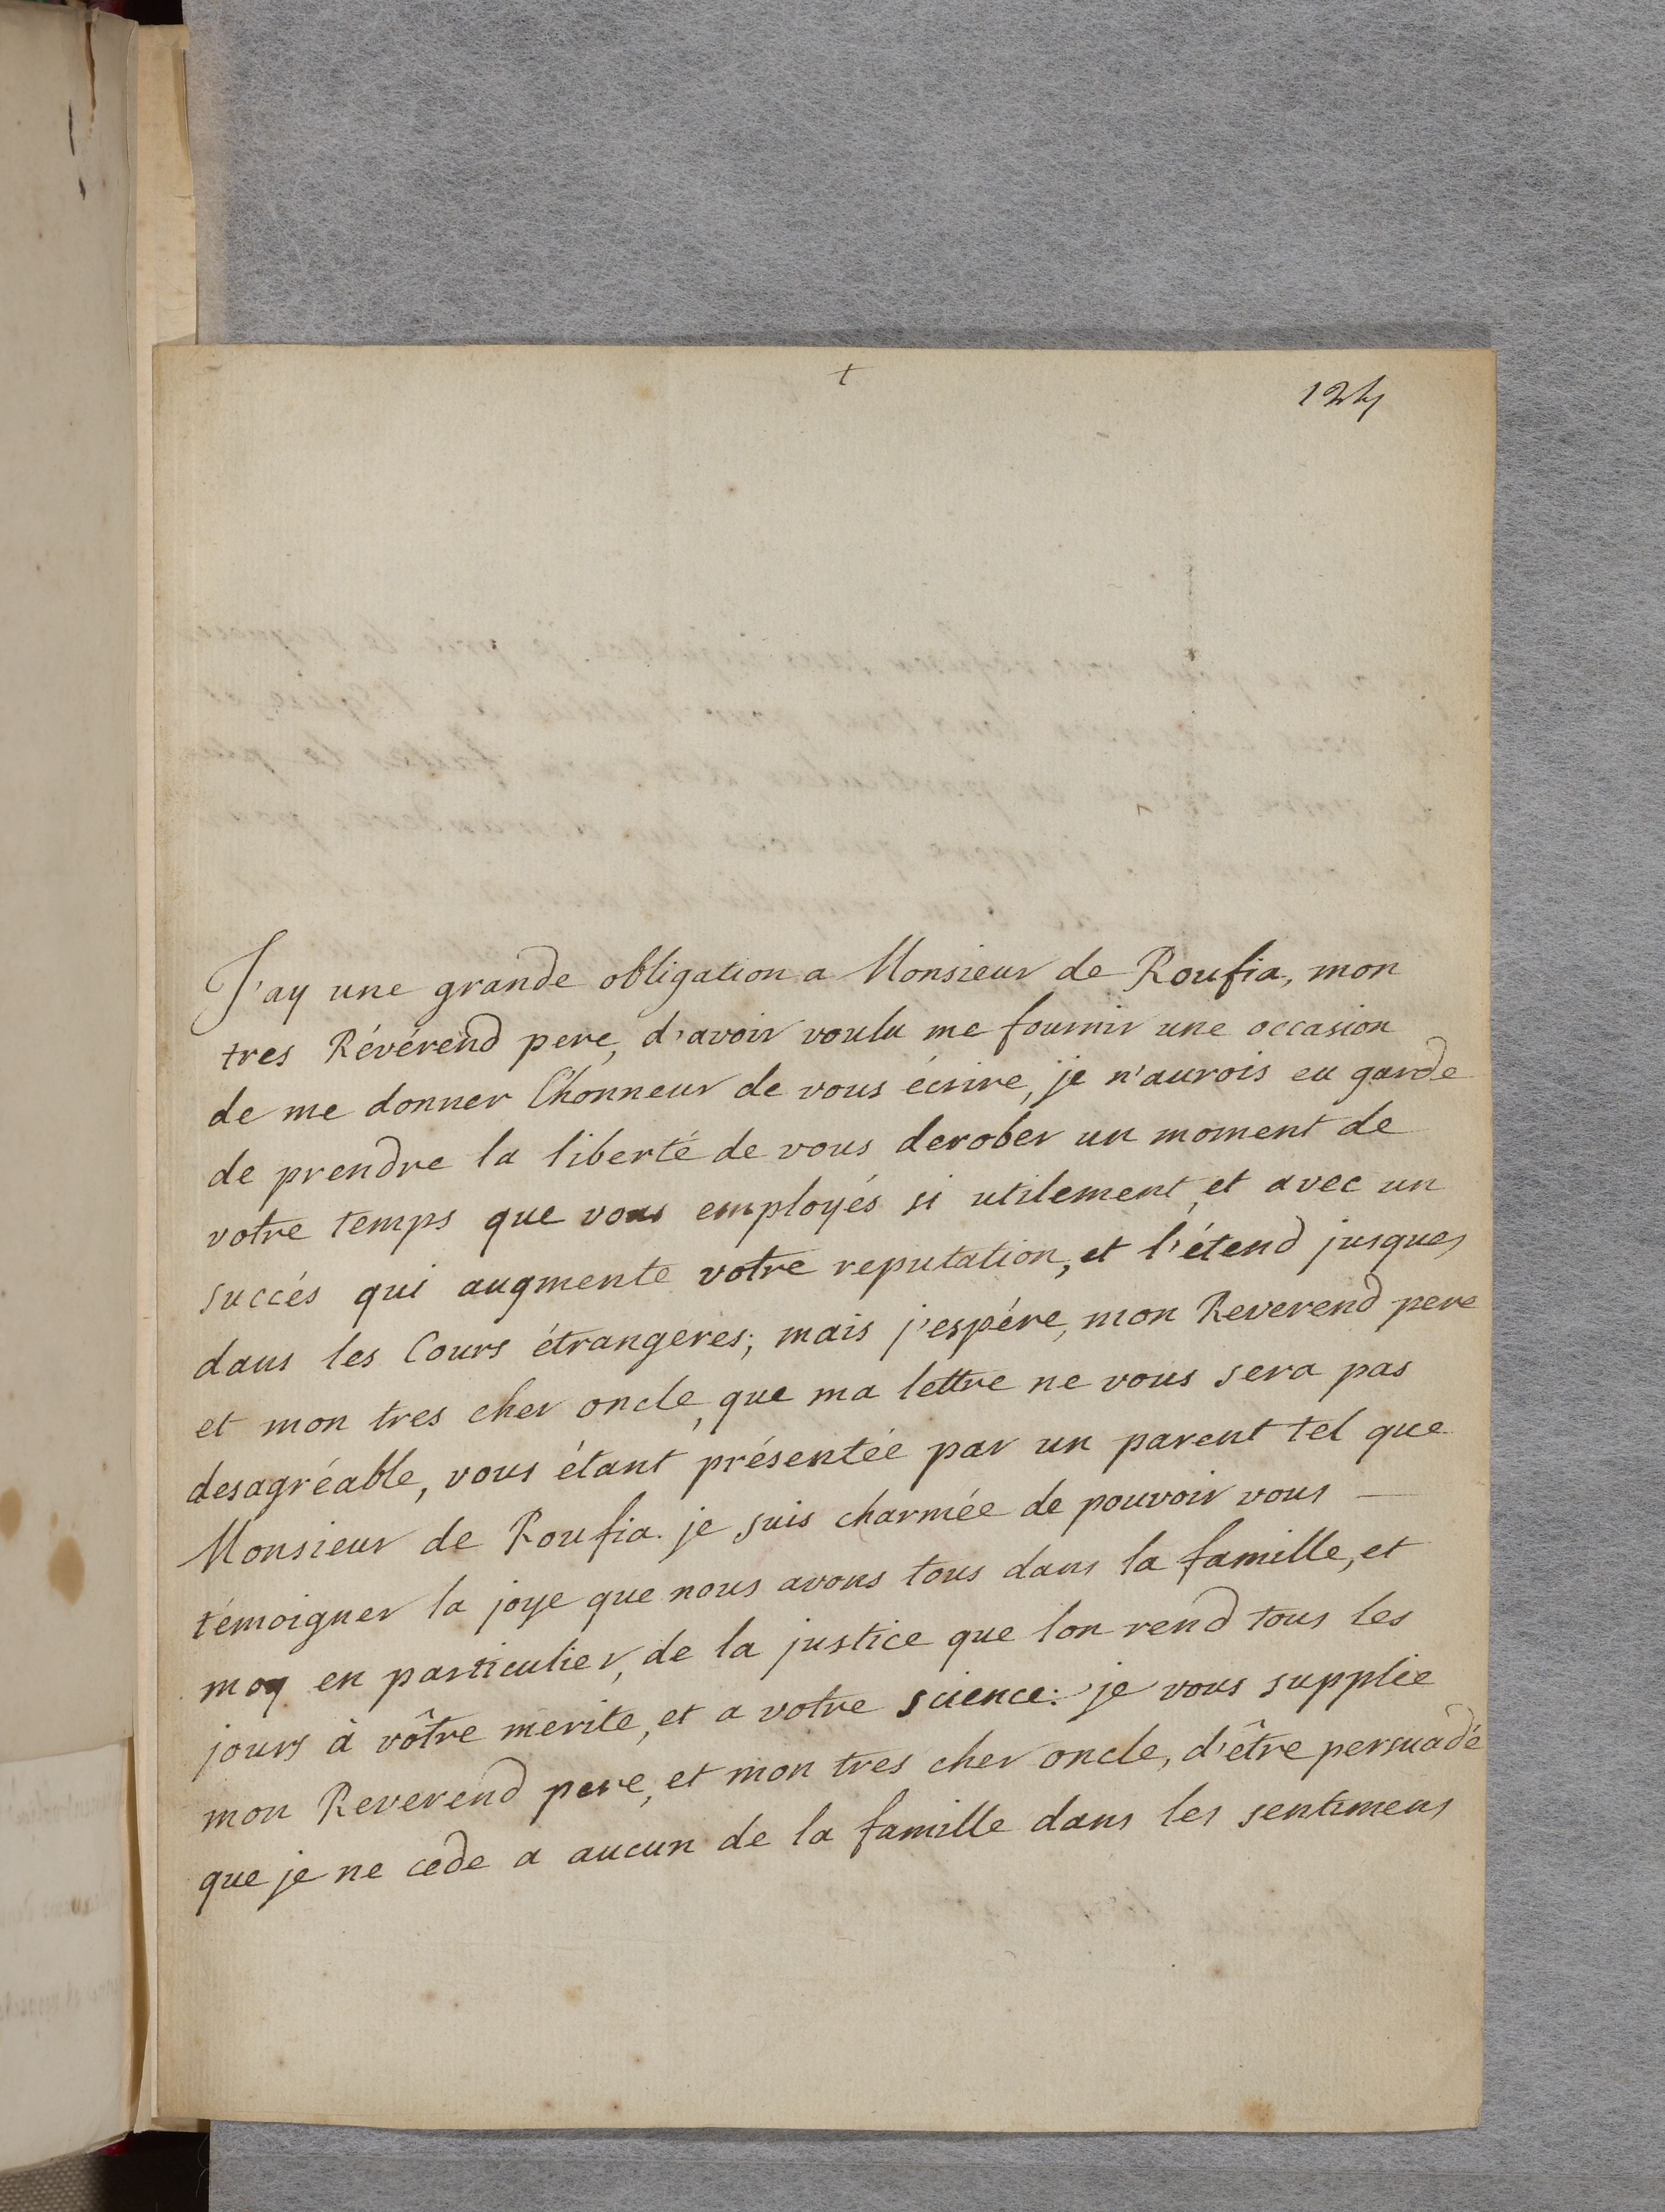 +
124
J'ay une grande obligation a Monsieur de Roufia, mon
tres Révérend pere, d'avoir voulu me fournir une occasion
de me donner l'honneur de vous écrire, je n'aurois eu garde
de prendre la liberté de vous derober un moment de
votre temps que vous employés si utilement, et avec un
succés qui augmente votre reputation, et l'étend jusques
dans les Cours étrangeres; mais j'espére, mon Reverend pere
et mon tres cher oncle, que ma lettre ne vous sera pas
desagréable, vous étant présentée par un parent tel que
Monsieur de Roufia. je suis charmée de pouvoir vous —
témoigner la joye que nous avons tous dans la famille, et
moy en particulier, de la justice que lon rend tous les
jours à vôtre merite, et a votre science: je vous supplie
mon Reverend pere, et mon tres cher oncle, d'être persuadé
que je ne cede a aucun de la famille dans les sentimens